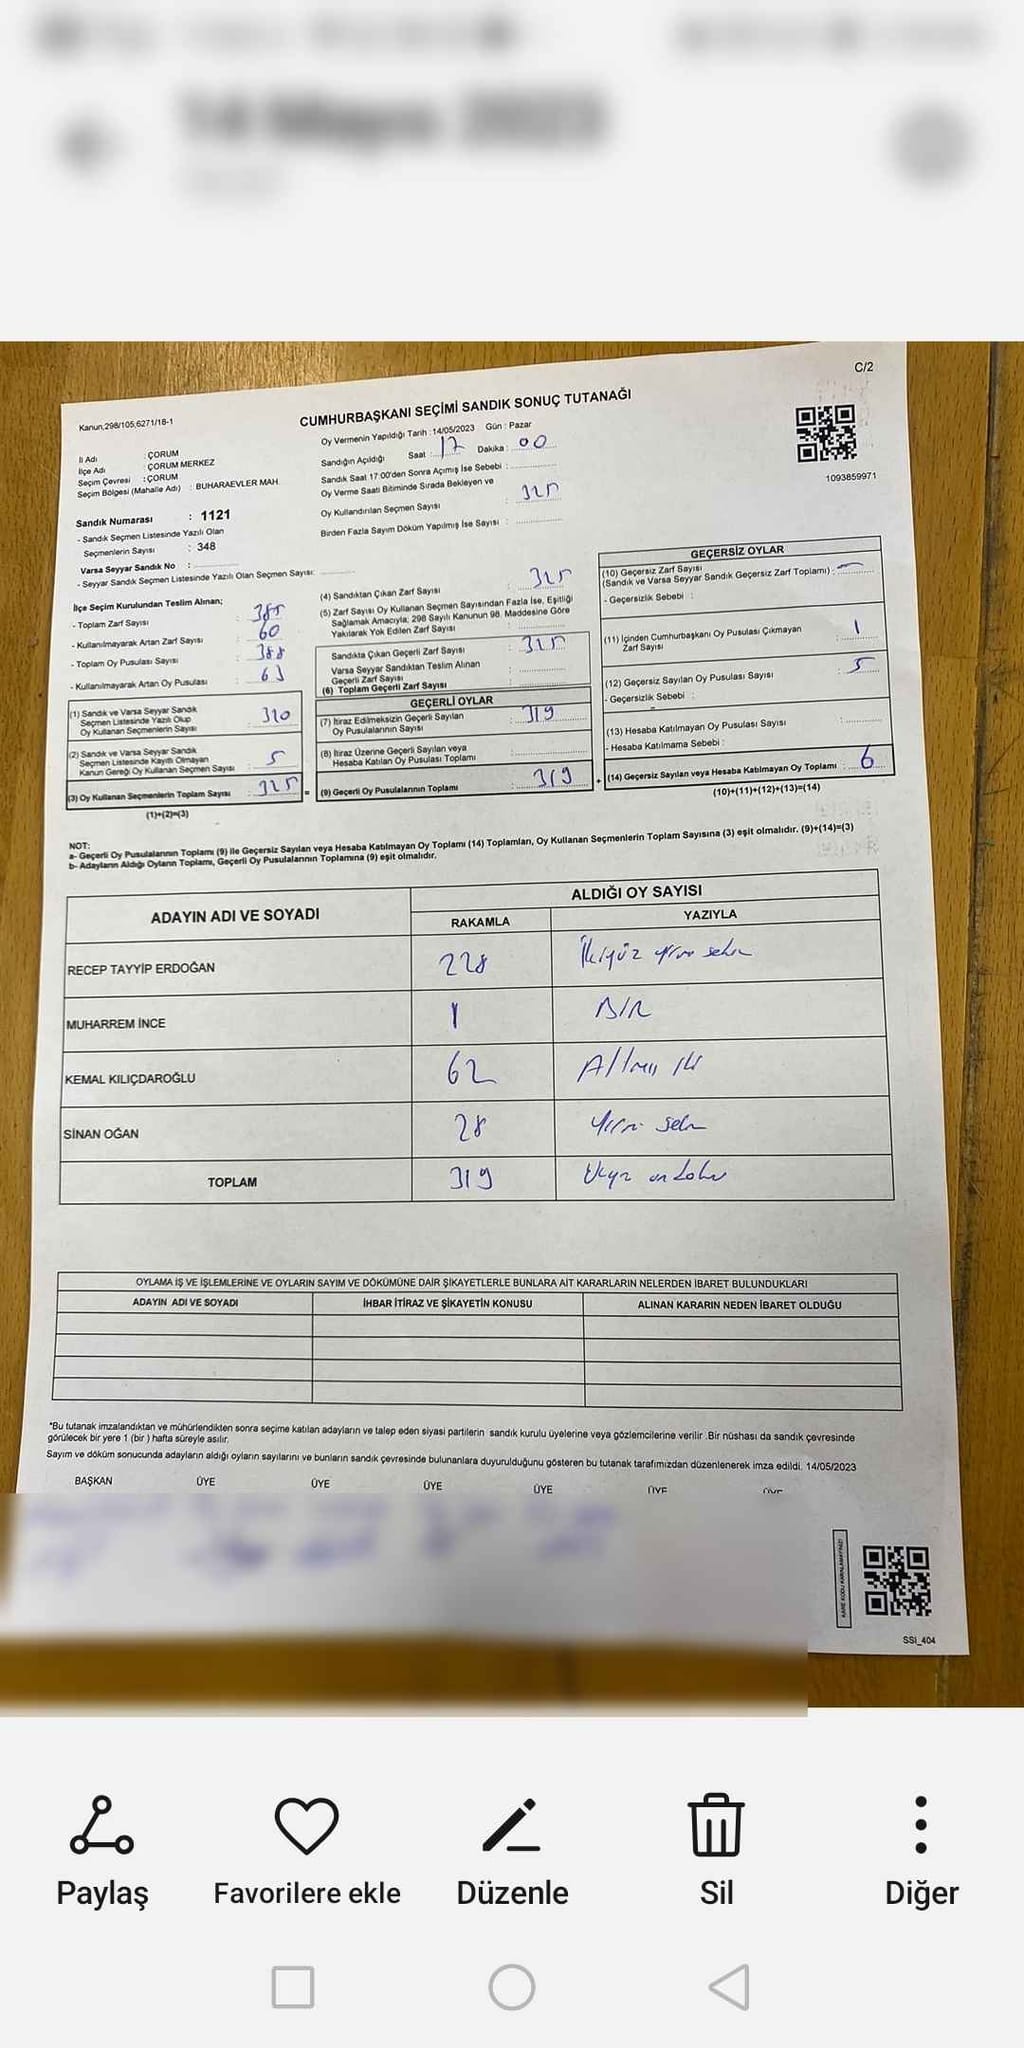 14 Mayıs 2023
C/2
Kanun,298/105,6271/18-1
CUMHURBAŞKANI SEÇİMİ SANDIK SONUÇ TUTANAĞI
Oy Vermenin Yapıldığı Tarih :14/05/2023 Gün : Pazar
İl Adı : ÇORUM
İlçe Adı : ÇORUM MERKEZ
Seçim Çevresi : ÇORUM
Seçim Bölgesi (Mahalle Adı) : BUHARAEVLER MAH.
Sandığın Açıldığı Saat : 17 Dakika : 00
Sandık Saat 17:00'den Sonra Açımış İse Sebebi :
Oy Verme Saati Bitiminde Sırada Bekleyen ve
Oy Kullandırılan Seçmen Sayısı : 325
Birden Fazla Sayım Döküm Yapılmış İse Sayısı :
1093859971
Sandık Numarası : 1121
- Sandık Seçmen Listesinde Yazılı Olan
Seçmenlerin Sayısı : 348
Varsa Seyyar Sandık No :
- Seyyar Sandık Seçmen Listesinde Yazılı Olan Seçmen Sayısı:
İlçe Seçim Kurulundan Teslim Alınan;
- Toplam Zarf Sayısı : 385
- Kullanılmayarak Artan Zarf Sayısı : 60
- Toplam Oy Pusulası Sayısı : 388
- Kullanılmayarak Artan Oy Pusulası : 63
(1) Sandık ve Varsa Seyyar Sandık
Seçmen Listesinde Yazılı Olup
Oy Kullanan Seçmenlerin Sayısı : 320
(2) Sandık ve Varsa Seyyar Sandık
Seçmen Listesinde Kayıtlı Olmayan
Kanun Gereği Oy Kullanan Seçmen Sayısı : 5
(3) Oy Kullanan Seçmenlerin Toplam Sayısı : 325
(1)+(2)=(3)
(4) Sandıktan Çıkan Zarf Sayısı : 325
(5) Zarf Sayısı Oy Kullanan Seçmen Sayısından Fazla İse, Eşitliği
Sağlamak Amacıyla; 298 Sayılı Kanunun 98. Maddesine Göre
Yakılarak Yok Edilen Zarf Sayısı :
Sandıkta Çıkan Geçerli Zarf Sayısı : 325
Varsa Seyyar Sandıktan Teslim Alınan
Geçerli Zarf Sayısı :
(6) Toplam Geçerli Zarf Sayısı :
GEÇERLİ OYLAR
(7) İtiraz Edilmeksizin Geçerli Sayılan
Oy Pusulalarının Sayısı : 319
(8) İtiraz Üzerine Geçerli Sayılan veya
Hesaba Katılan Oy Pusulası Toplamı :
= (9) Geçerli Oy Pusulalarının Toplamı : 319
GEÇERSİZ OYLAR
(10) Geçersiz Zarf Sayısı
(Sandık ve Varsa Seyyar Sandık Geçersiz Zarf Toplamı) : —
- Geçersizlik Sebebi :
(11) İçinden Cumhurbaşkanı Oy Pusulası Çıkmayan
Zarf Sayısı : 1
(12) Geçersiz Sayılan Oy Pusulası Sayısı : 5
- Geçersizlik Sebebi :
(13) Hesaba Katılmayan Oy Pusulası Sayısı :
- Hesaba Katılmama Sebebi :
+ (14) Geçersiz Sayılan veya Hesaba Katılmayan Oy Toplamı : 6
(10)+(11)+(12)+(13)=(14)
NOT:
a- Geçerli Oy Pusulalarının Toplamı (9) ile Geçersiz Sayılan veya Hesaba Katılmayan Oy Toplamı (14) Toplamları, Oy Kullanan Seçmenlerin Toplam Sayısına (3) eşit olmalıdır. (9)+(14)=(3)
b- Adayların Aldığı Oyların Toplamı, Geçerli Oy Pusulalarının Toplamına (9) eşit olmalıdır.
ADAYIN ADI VE SOYADI
ALDIĞI OY SAYISI
RAKAMLA YAZIYLA
RECEP TAYYİP ERDOĞAN 228 İkiyüz yirmi sekiz
MUHARREM İNCE 1 BİR
KEMAL KILIÇDAROĞLU 62 Altmış iki
SİNAN OĞAN 28 yirmi sekiz
TOPLAM 319 Üçyüz on dokuz
OYLAMA İŞ VE İŞLEMLERİNE VE OYLARIN SAYIM VE DÖKÜMÜNE DAİR ŞİKAYETLERLE BUNLARA AİT KARARLARIN NELERDEN İBARET BULUNDUKLARI
ADAYIN ADI VE SOYADI İHBAR İTİRAZ VE ŞİKAYETİN KONUSU ALINAN KARARIN NEDEN İBARET OLDUĞU
*Bu tutanak imzalandıktan ve mühürlendikten sonra seçime katılan adayların ve talep eden siyasi partilerin sandık kurulu üyelerine veya gözlemcilerine verilir .Bir nüshası da sandık çevresinde
görülecek bir yere 1 (bir ) hafta süreyle asılır.
Sayım ve döküm sonucunda adayların aldığı oyların sayılarını ve bunların sandık çevresinde bulunanlara duyurulduğunu gösteren bu tutanak tarafımızdan düzenlenerek imza edildi. 14/05/2023
BAŞKAN ÜYE ÜYE ÜYE ÜYE ÜYE ÜYE
SSI_404
Paylaş Favorilere ekle Düzenle Sil Diğer